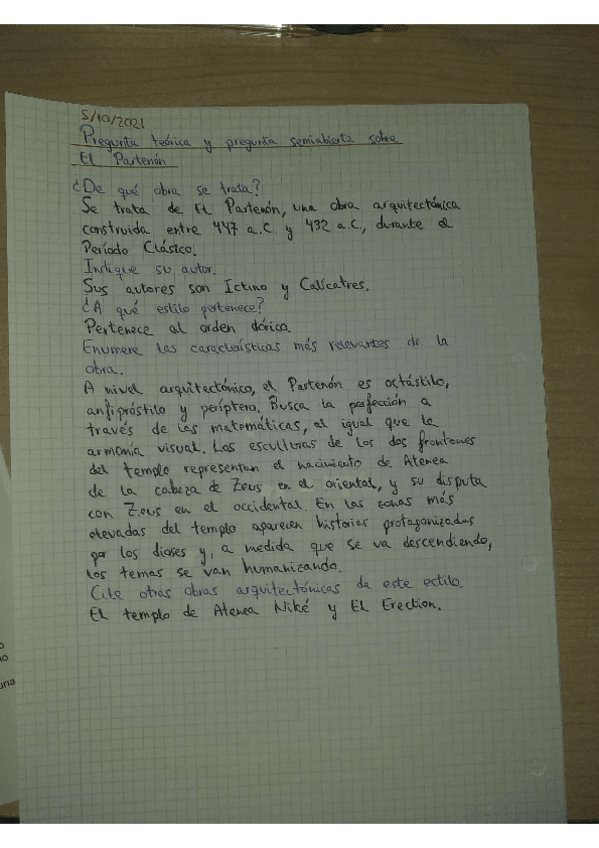 5/10/2021
Pregunta teórica y pregunta semiabierta sobre
El Partenón
¿De qué obra se trata?
Se trata de El Partenón, una obra arquitectónica
construida entre 447 a.C. y 432 a.C., durante el
Período Clásico.
Indique su autor.
Sus autores son Ictino y Calícatres.
¿A qué estilo pertenece?
Pertenece al orden dórico.
Enumere las características más relevantes de la
obra.
A nivel arquitectónico, el Partenón es octástilo,
anfipróstilo y períptero. Busca la perfección a
través de las matemáticas, al igual que la
armonía visual. Las esculturas de los dos frontones
del templo representan el nacimiento de Atenea
de la cabeza de Zeus en el oriental, y su disputa
con Zeus en el occidental. En las zonas más
elevadas del templo aparecen historias protagonizadas
por los dioses y, a medida que se va descendiendo,
los temas se van humanizando.
Cite otras obras arquitectónicas de este estilo.
El templo de Atenea Niké y El Erection.
o
no
una